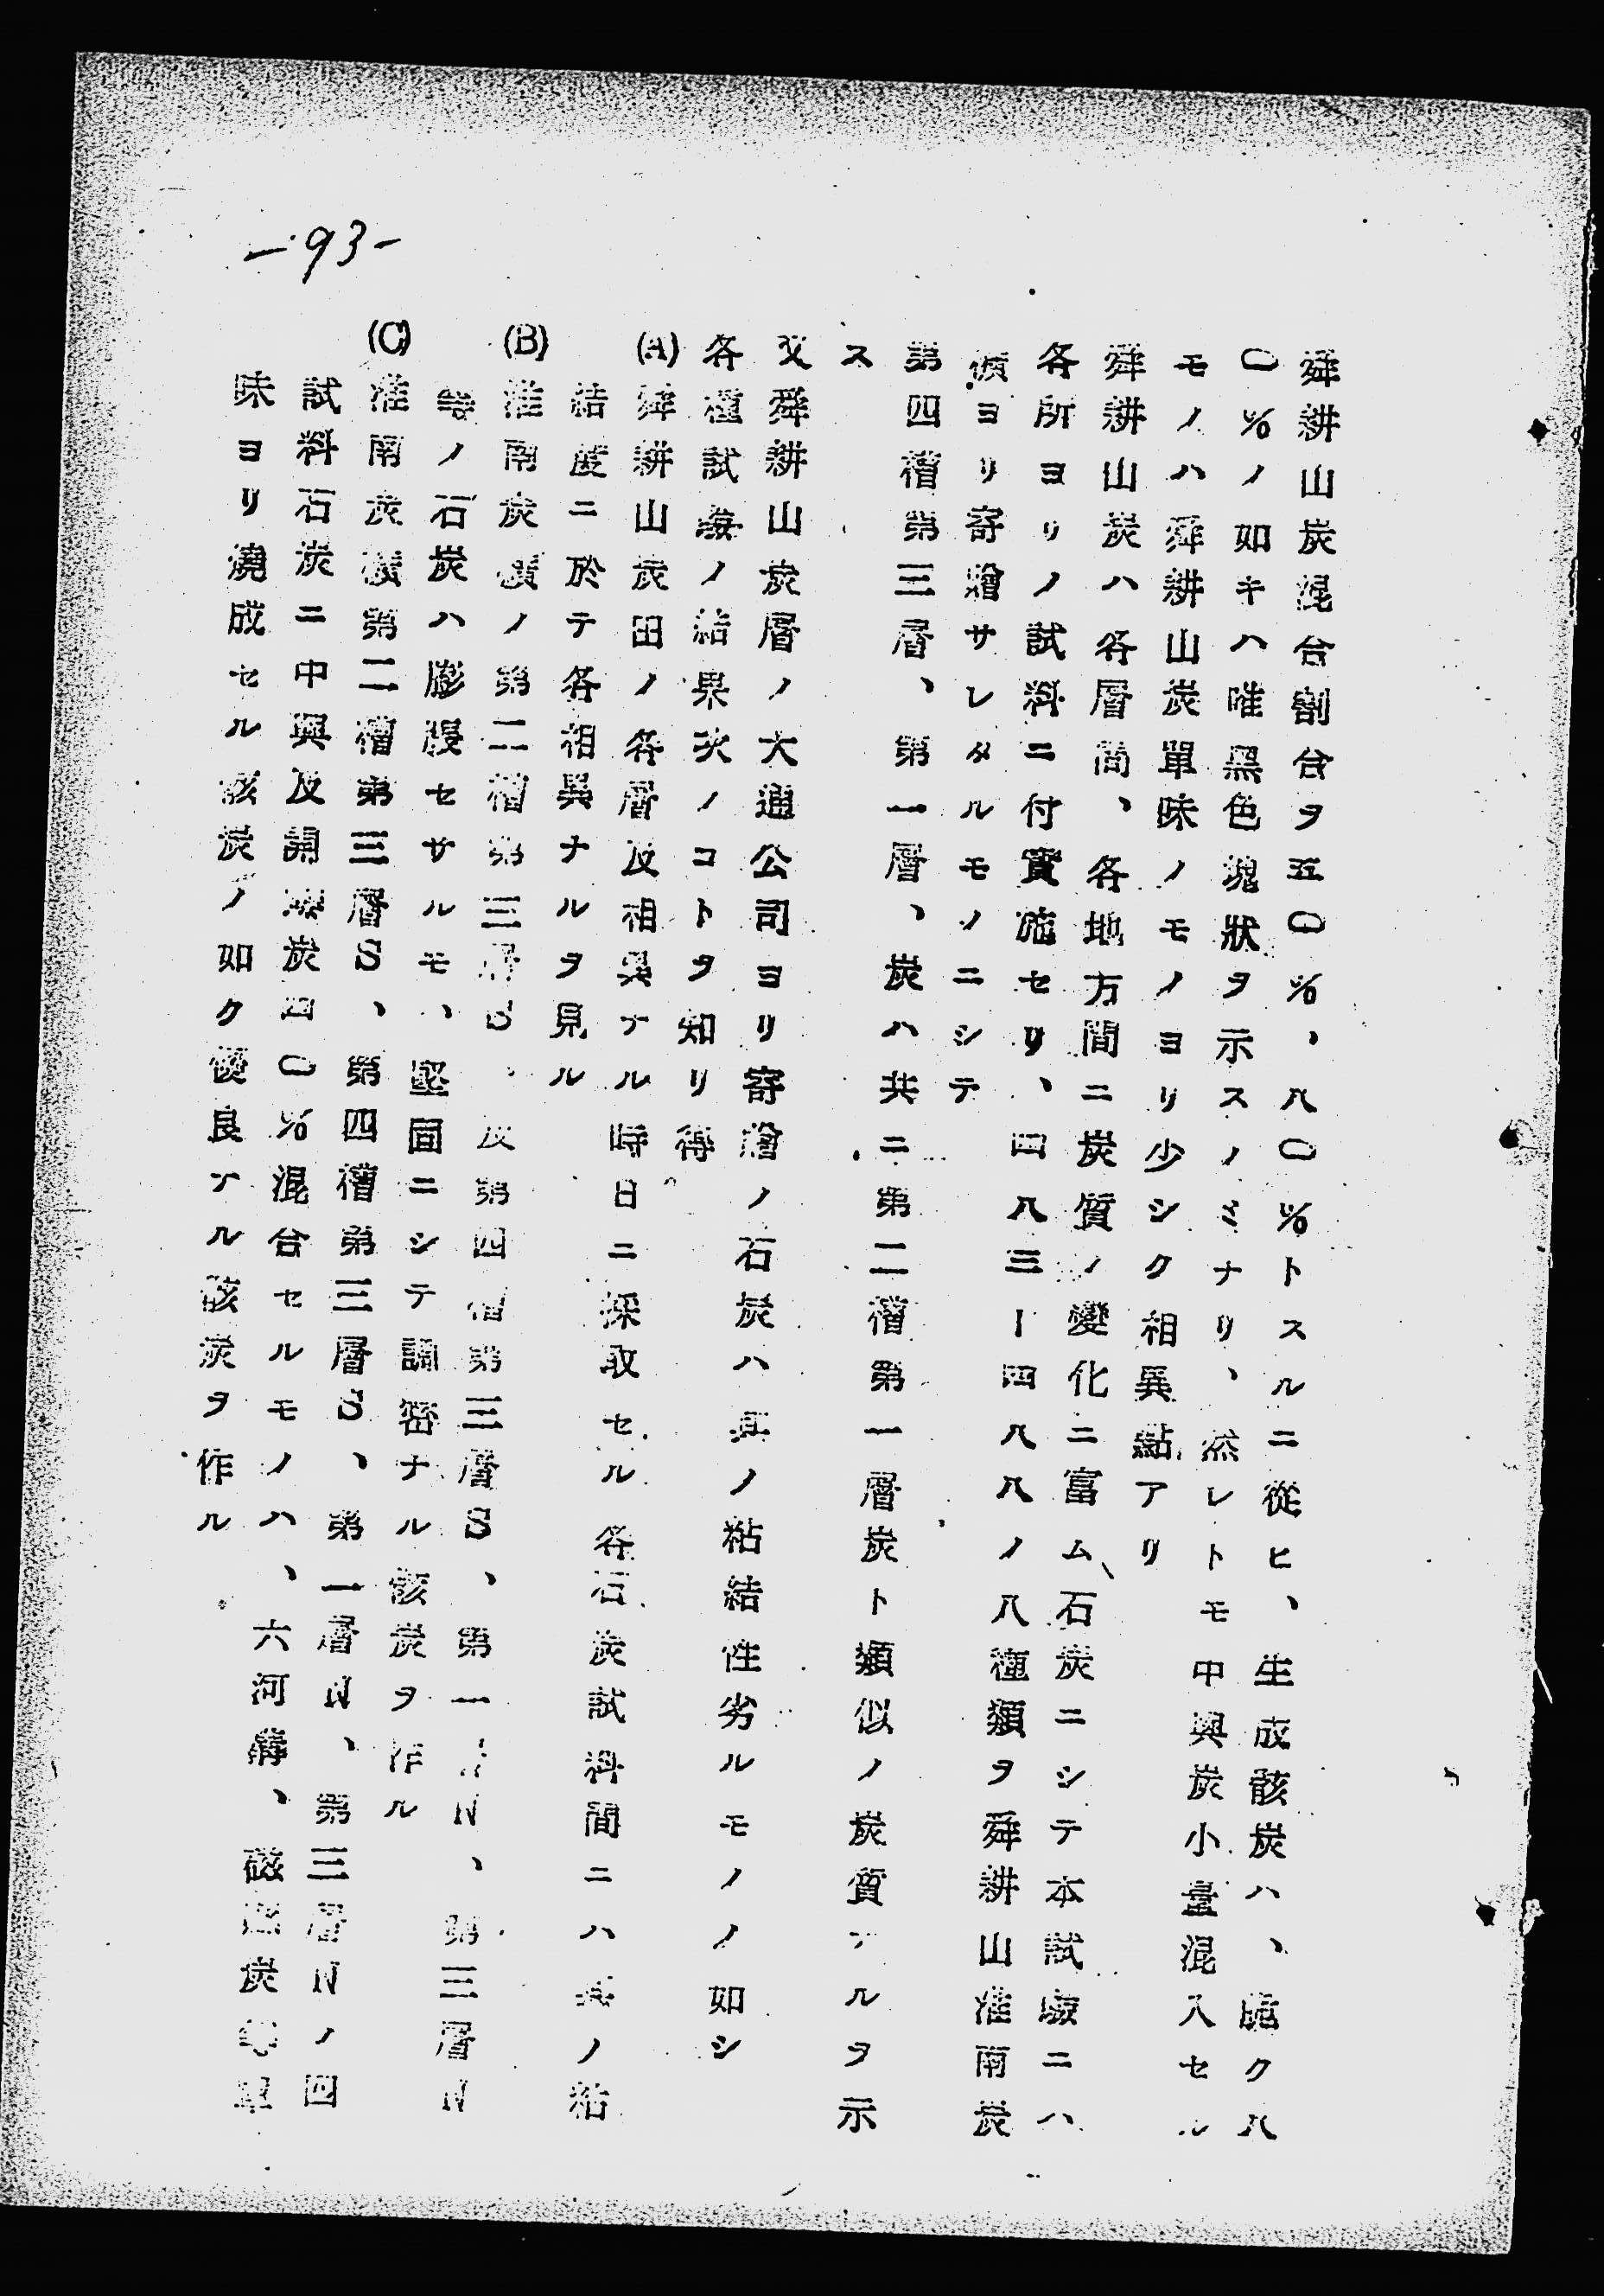 —93—
舜耕山炭混合割合ヲ五〇%、八〇%トスルニ從ヒ、生成骸炭ハ、脆ク八
〇%ノ如キハ唯黑色塊狀ヲ示スノミナリ、然レトモ中興炭小量混入セル
モノハ舜耕山炭單味ノモノヨリ少シク相異點アリ
舜耕山炭ハ各層間、各地方間ニ炭質ノ變化ニ富ム石炭ニシテ本試驗ニハ
各所ヨリノ試料ニ付實施セリ、四八三ー四八八ノ八種類ヲ舜耕山淮南炭
礦ヨリ寄贈サレタルモノニシテ
第四槽第三層、第一層、炭ハ共ニ第二槽第一層炭ト類似ノ炭質ナルヲ示
ス
又舜耕山炭層ノ大通公司ヨリ寄贈ノ石炭ハ其ノ粘結性劣ルモノノ如シ
各種試驗ノ結果次ノコトヲ知リ得
(A)舜耕山炭田ノ各層及相異ナル時日ニ採取セル各石炭試料間ニハ其ノ粘
結度ニ於テ各相異ナルヲ見ル
(B)淮南炭礦ノ第二槽第三層S、及第四槽第三層S、第一層N、第三層N
等ノ石炭ハ膨脹セサルモ、堅固ニシテ稠密ナル骸炭ヲ作ル
(C)淮南炭礦第二槽第三層S、第四槽第三層S、第一層N、第三層Nノ四
試料石炭ニ中興及開灤炭四〇%混合セルモノハ、六河溝、磁縣炭等單
味ヨリ燒成セル骸炭ノ如ク優良ナル骸炭ヲ作ル